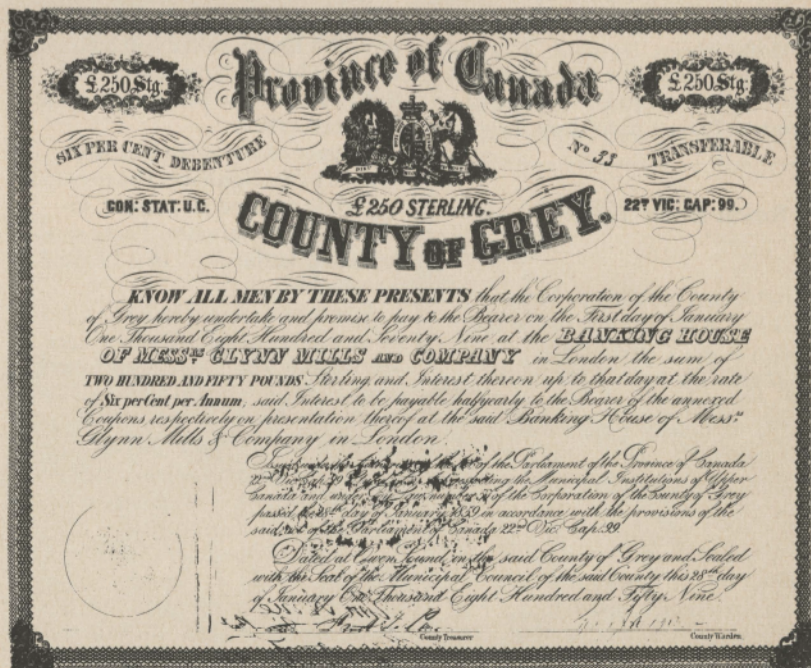 Province of Canada
£250 Stg:
£250 Stg:
SIX PER CENT DEBENTURE
No 33 TRANSFERABLE
CON: STAT: U.C.
£250 STERLING.
22D VIC: CAP: 99.
COUNTY OF GREY.
KNOW ALL MEN BY THESE PRESENTS that the Corporation of the County
of Grey hereby undertake and promise to pay to the Bearer on the First day of January
One Thousand Eight Hundred and Seventy Nine at the BANKING HOUSE
OF MESSRS GLYNN MILLS AND COMPANY in London the sum of
TWO HUNDRED AND FIFTY POUNDS Sterling and Interest thereon up to that day at the rate
of Six per Cent per Annum, said Interest to be payable halfyearly to the Bearer of the annexed
Coupons respectively on presentation thereof at the said Banking House of Messrs
Glynn Mills & Company in London.
of the Parliament of the Province of Canada
the Municipal Institutions of Upper
Canada and under number of the Corporation of the County of Grey
passed the 28th day of January 1859 in accordance with the provisions of the
said Act of the Parliament of Canada 22D Vic: Cap: 99
Dated at Owen Sound, in the said County of Grey and Sealed
with the Seal of the Municipal Council of the said County this 28th day
of January One Thousand Eight Hundred and Fifty Nine.
County Treasurer
County Warden.